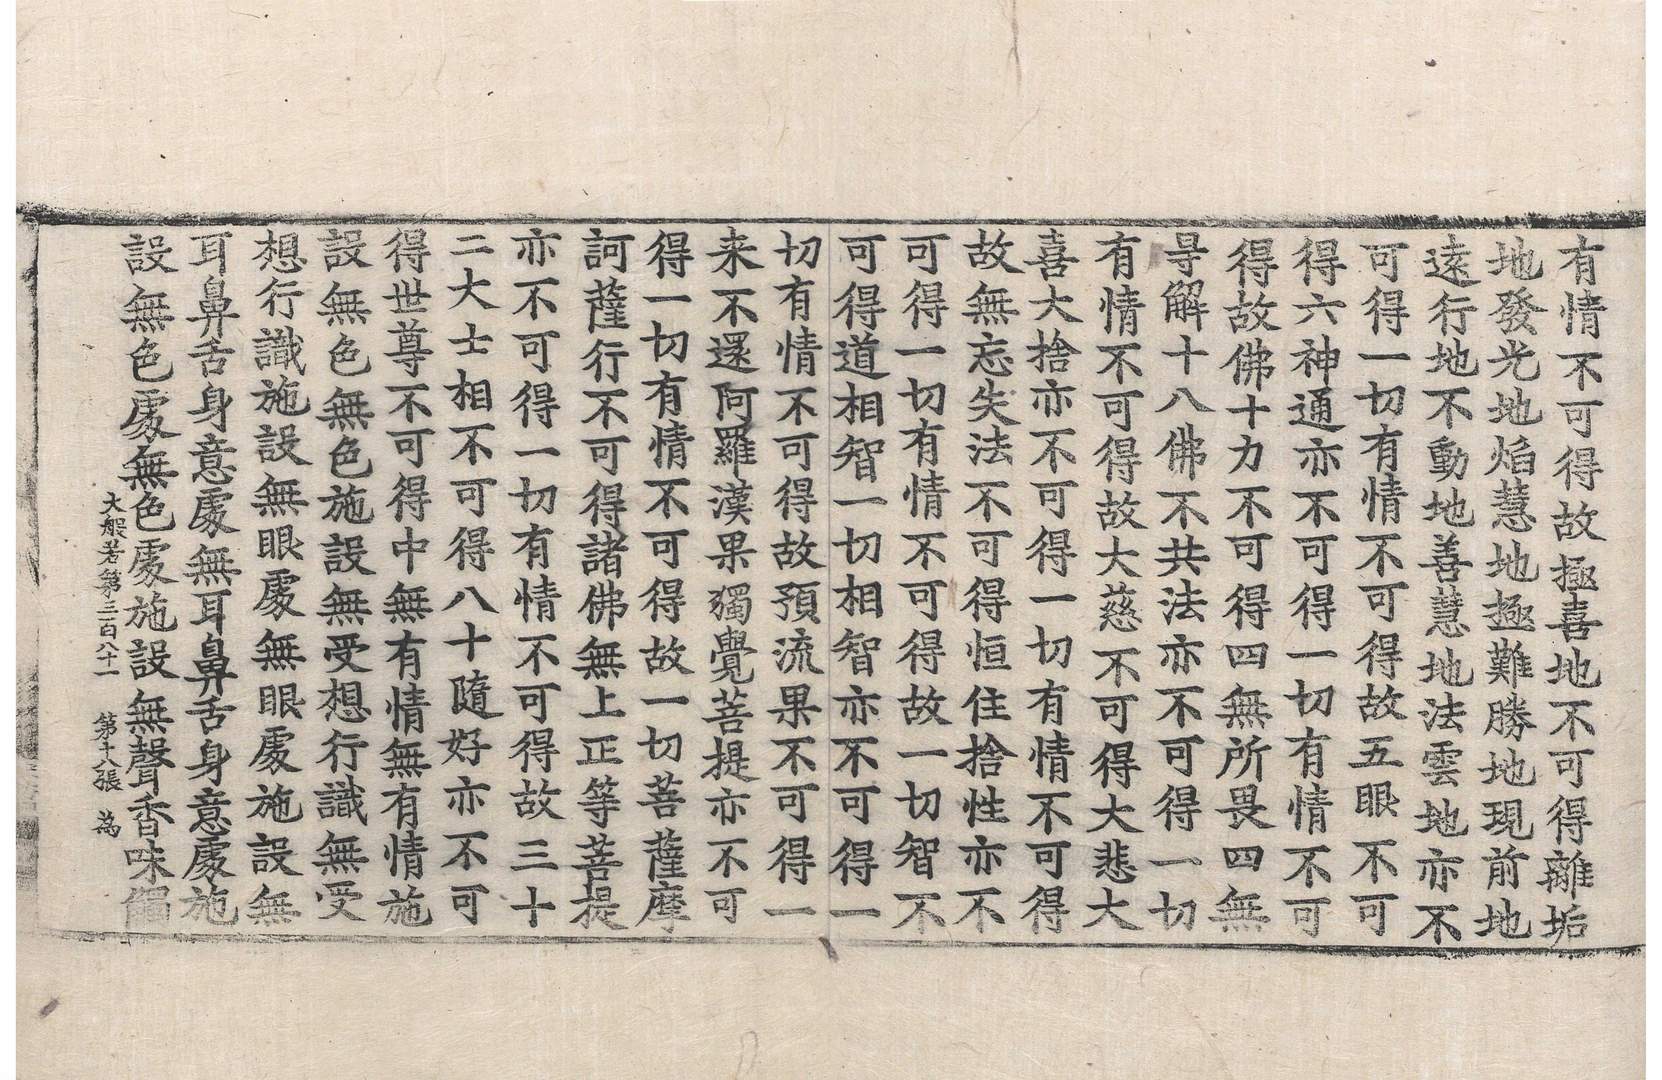 有情不可得故極喜地不可得離垢
地發光地焰慧地極難勝地現前地
遠行地不動地善慧地法雲地亦不
可得一切有情不可得故五眼不可
得六神通亦不可得一切有情不可
得故佛十力不可得四無所畏四無
㝵解十八佛不共法亦不可得一切
有情不可得故大慈不可得大悲大
喜大捨亦不可得一切有情不可得
故無忘失法不可得恒住捨性亦不
可得一切有情不可得故一切智不
可得道相智一切相智亦不可得一
切有情不可得故預流果不可得一
来不還阿羅漢果獨覺菩提亦不可
得一切有情不可得故一切菩薩摩
訶薩行不可得諸佛無上正等菩提
亦不可得一切有情不可得故三十
二大士相不可得八十隨好亦不可
得世尊不可得中無有情無有情施
設無色無色施設無受想行識無受
想行識施設無眼處無眼處施設無
耳鼻舌身意處無耳鼻舌身意處施
設無色處無色處施設無聲香味觸
大般若第三百八十一 第十八張 為